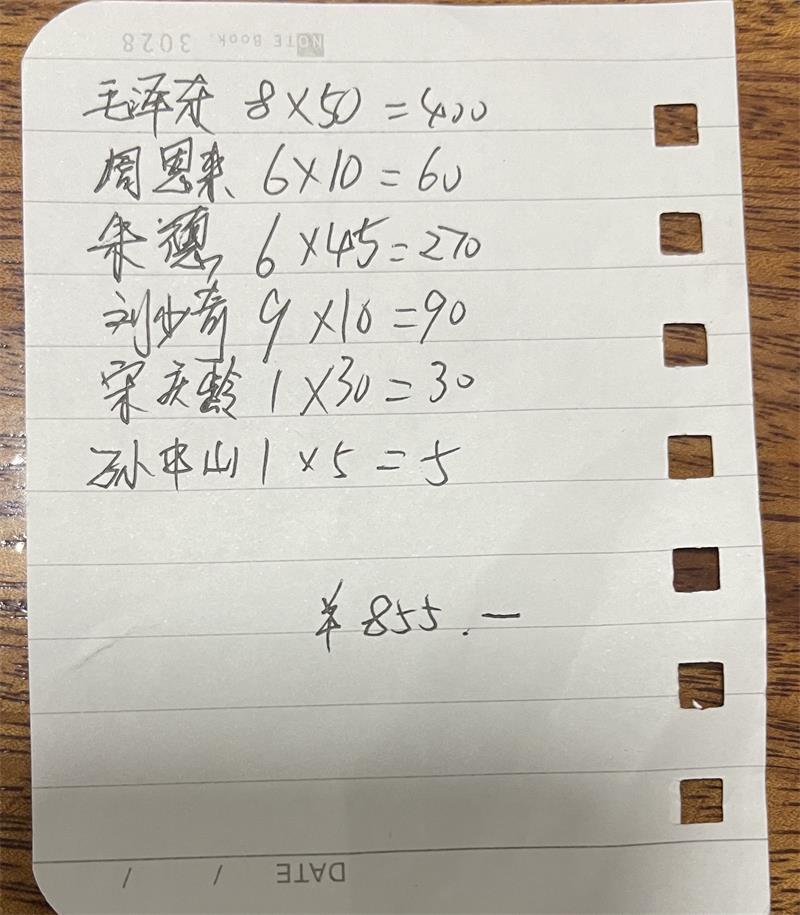 NOTE Book. 3028
毛泽东 8×50=400
周恩来 6×10=60
朱德 6×45=270
刘少奇 9×10=90
宋庆龄 1×30=30
孙中山 1×5=5
¥855.—
DATE / /